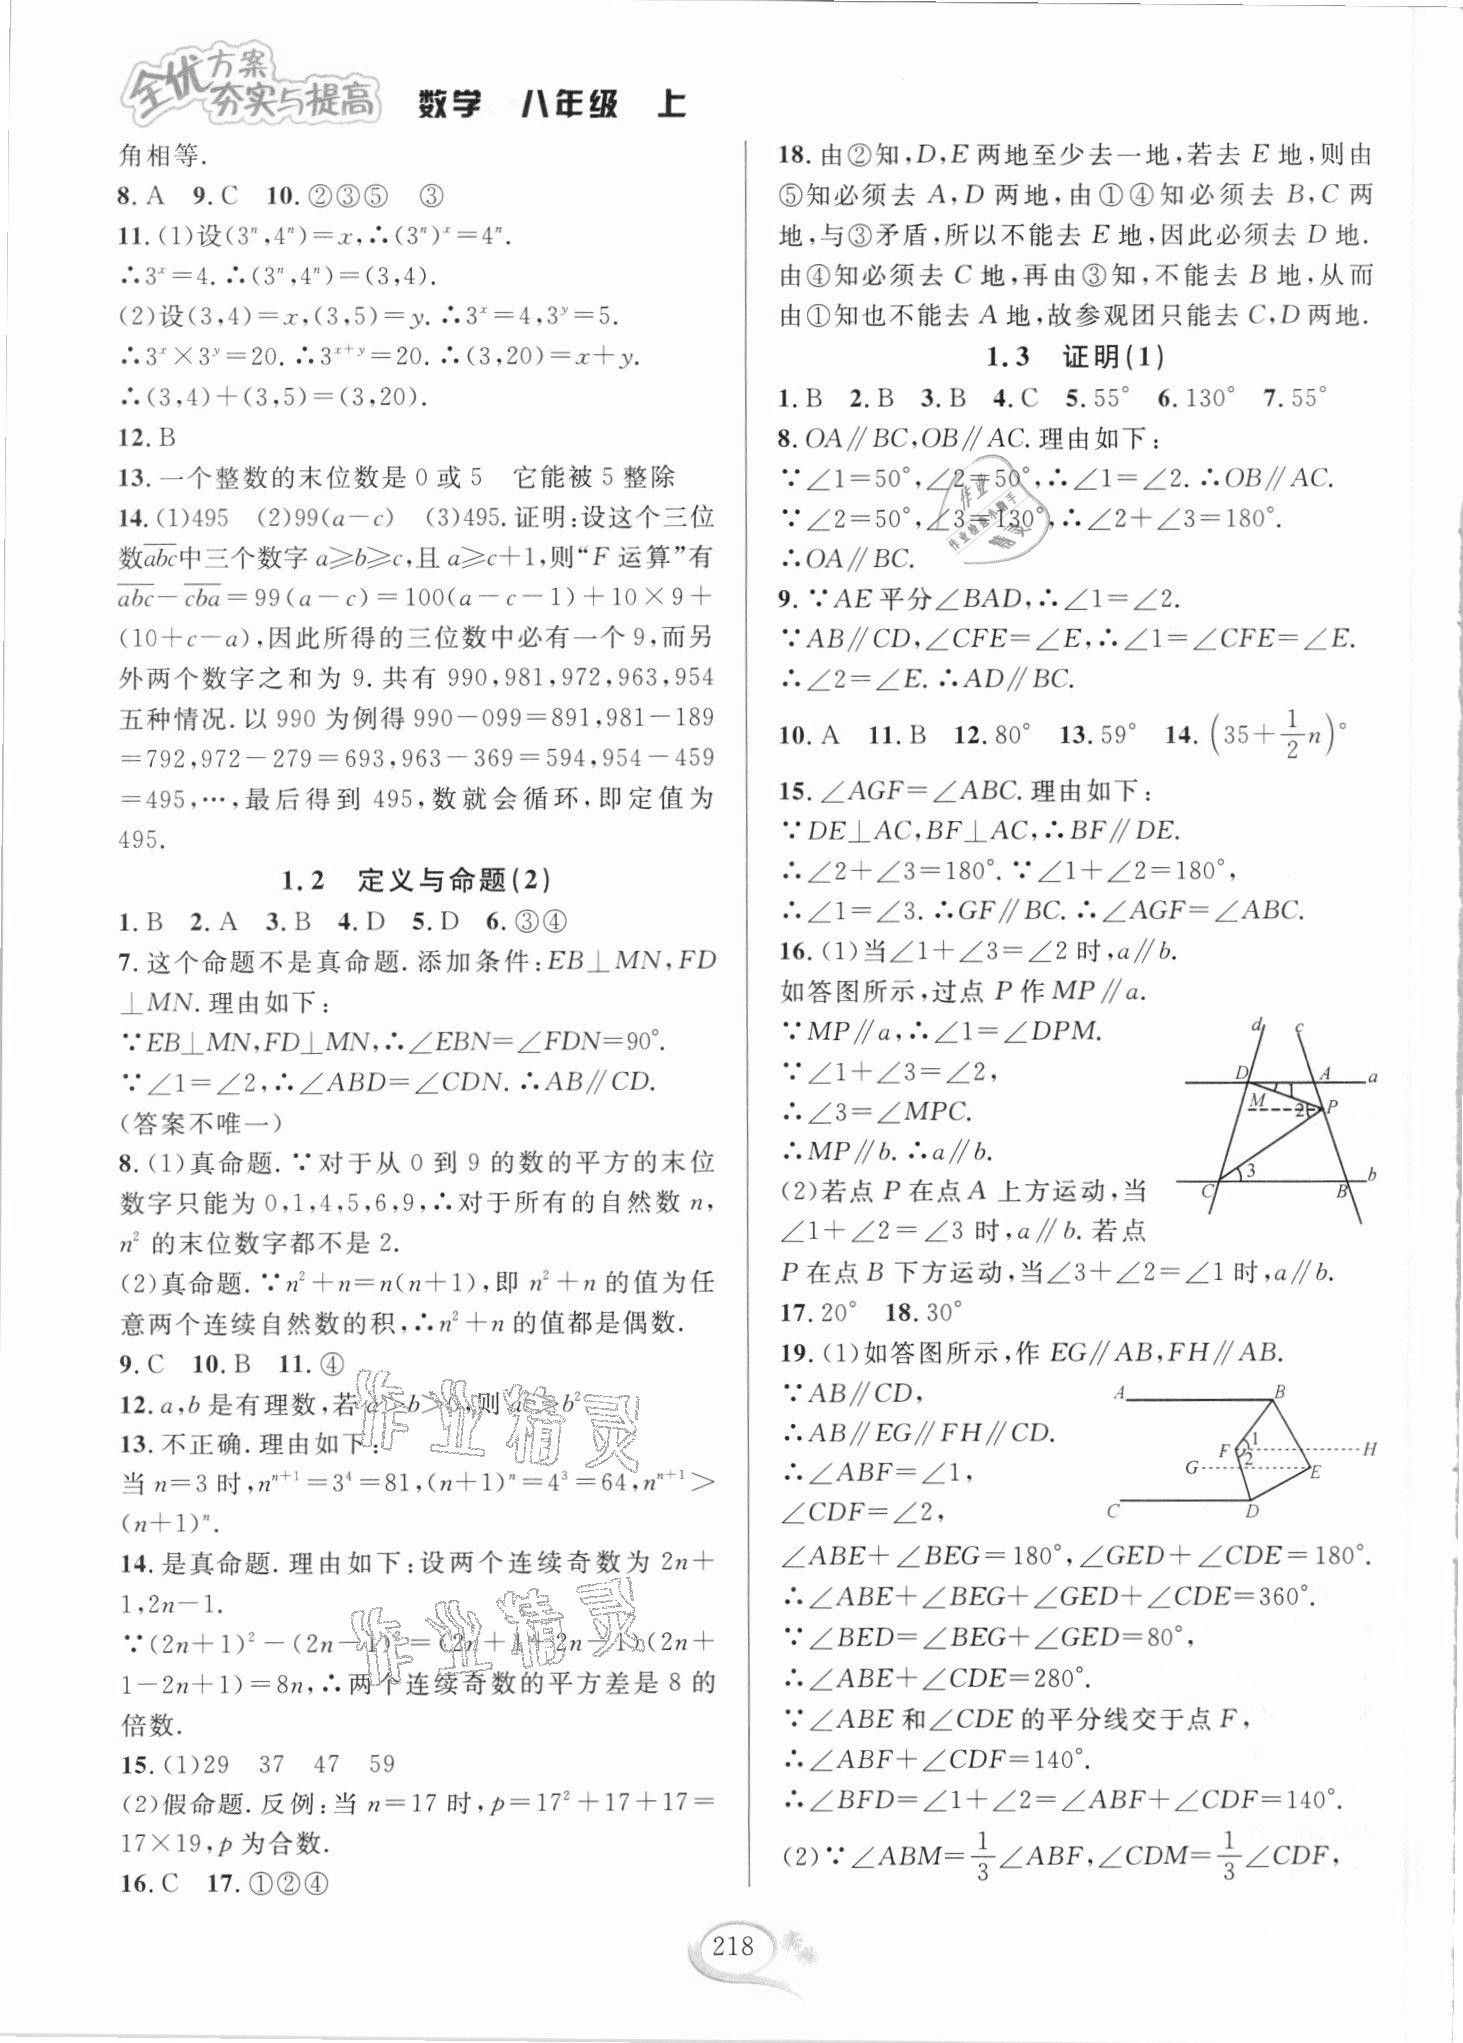 全优方案
夯实与提高
数学 八年级 上
角相等.
8. A 9. C 10. ②③⑤ ③
11. (1)设(3ⁿ,4ⁿ)=x,∴(3ⁿ)ˣ=4ⁿ.
∴3ˣ=4.∴(3ⁿ,4ⁿ)=(3,4).
(2)设(3,4)=x,(3,5)=y.∴3ˣ=4,3ʸ=5.
∴3ˣ×3ʸ=20.∴3ˣ⁺ʸ=20.∴(3,20)=x+y.
∴(3,4)+(3,5)=(3,20).
12. B
13. 一个整数的末位数是 0 或 5 它能被 5 整除
14. (1)495 (2)99(a-c) (3)495.证明:设这个三位
数a̅b̅c̅中三个数字 a≥b≥c,且 a≥c+1,则“F 运算”有
a̅b̅c̅-c̅b̅a̅=99(a-c)=100(a-c-1)+10×9+
(10+c-a),因此所得的三位数中必有一个 9,而另
外两个数字之和为 9.共有 990,981,972,963,954
五种情况.以 990 为例得 990-099=891,981-189
=792,972-279=693,963-369=594,954-459
=495,…,最后得到 495,数就会循环,即定值为
495.
1.2 定义与命题(2)
1. B 2. A 3. B 4. D 5. D 6. ③④
7. 这个命题不是真命题.添加条件:EB⊥MN,FD
⊥MN.理由如下:
∵EB⊥MN,FD⊥MN,∴∠EBN=∠FDN=90°.
∵∠1=∠2,∴∠ABD=∠CDN.∴AB∥CD.
(答案不唯一)
8. (1)真命题.∵对于从 0 到 9 的数的平方的末位
数字只能为 0,1,4,5,6,9,∴对于所有的自然数 n,
n² 的末位数字都不是 2.
(2)真命题.∵n²+n=n(n+1),即 n²+n 的值为任
意两个连续自然数的积,∴n²+n 的值都是偶数.
9. C 10. B 11. ④
12. a,b 是有理数,若 a>b>0,则 a²>b²
13. 不正确.理由如下:
当 n=3 时,nⁿ⁺¹=3⁴=81,(n+1)ⁿ=4³=64,nⁿ⁺¹>
(n+1)ⁿ.
14. 是真命题.理由如下:设两个连续奇数为 2n+
1,2n-1.
∵(2n+1)²-(2n-1)²=(2n+1+2n-1)(2n+
1-2n+1)=8n,∴两个连续奇数的平方差是 8 的
倍数.
15. (1)29 37 47 59
(2)假命题.反例:当 n=17 时,p=17²+17+17=
17×19,p 为合数.
16. C 17. ①②④
18. 由②知,D,E 两地至少去一地,若去 E 地,则由
⑤知必须去 A,D 两地,由①④知必须去 B,C 两
地,与③矛盾,所以不能去 E 地,因此必须去 D 地.
由④知必须去 C 地,再由③知,不能去 B 地,从而
由①知也不能去 A 地,故参观团只能去 C,D 两地.
1.3 证明(1)
1. B 2. B 3. B 4. C 5. 55° 6. 130° 7. 55°
8. OA∥BC,OB∥AC.理由如下:
∵∠1=50°,∠2=50°,∴∠1=∠2.∴OB∥AC.
∵∠2=50°,∠3=130°,∴∠2+∠3=180°.
∴OA∥BC.
9. ∵AE 平分∠BAD,∴∠1=∠2.
∵AB∥CD,∠CFE=∠E,∴∠1=∠CFE=∠E.
∴∠2=∠E.∴AD∥BC.
10. A 11. B 12. 80° 13. 59° 14. (35+1/2n)°
15. ∠AGF=∠ABC.理由如下:
∵DE⊥AC,BF⊥AC,∴BF∥DE.
∴∠2+∠3=180°.∵∠1+∠2=180°,
∴∠1=∠3.∴GF∥BC.∴∠AGF=∠ABC.
16. (1)当∠1+∠3=∠2 时,a∥b.
如答图所示,过点 P 作 MP∥a.
∵MP∥a,∴∠1=∠DPM.
∵∠1+∠3=∠2,
∴∠3=∠MPC.
∴MP∥b.∴a∥b.
(2)若点 P 在点 A 上方运动,当
∠1+∠2=∠3 时,a∥b.若点
P 在点 B 下方运动,当∠3+∠2=∠1 时,a∥b.
d c
D 1 A a
M 2 P
C 3 B b
17. 20° 18. 30°
19. (1)如答图所示,作 EG∥AB,FH∥AB.
∵AB∥CD,
∴AB∥EG∥FH∥CD.
∴∠ABF=∠1,
∠CDF=∠2,
A B
F 1 2 H
G E
C D
∠ABE+∠BEG=180°,∠GED+∠CDE=180°.
∴∠ABE+∠BEG+∠GED+∠CDE=360°.
∵∠BED=∠BEG+∠GED=80°,
∴∠ABE+∠CDE=280°.
∵∠ABE 和∠CDE 的平分线交于点 F,
∴∠ABF+∠CDF=140°.
∴∠BFD=∠1+∠2=∠ABF+∠CDF=140°.
(2)∵∠ABM=1/3∠ABF,∠CDM=1/3∠CDF,
218
作业精灵
作业精灵